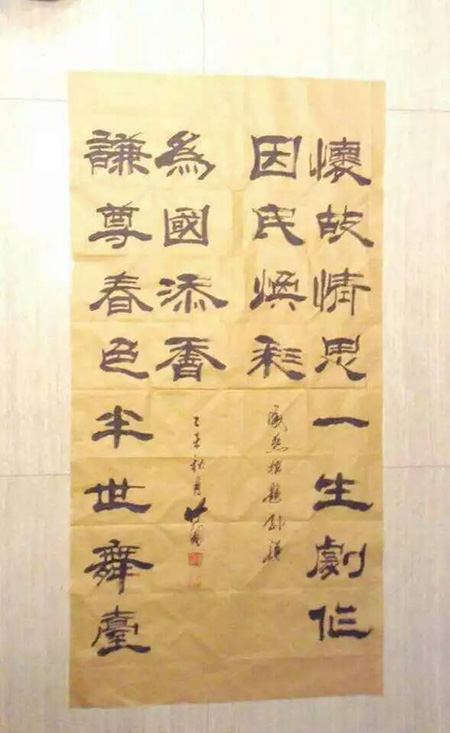 懷故情思一生劇作
因民煥彩
謙尊春色半世舞臺
為國添香
乙未秋月